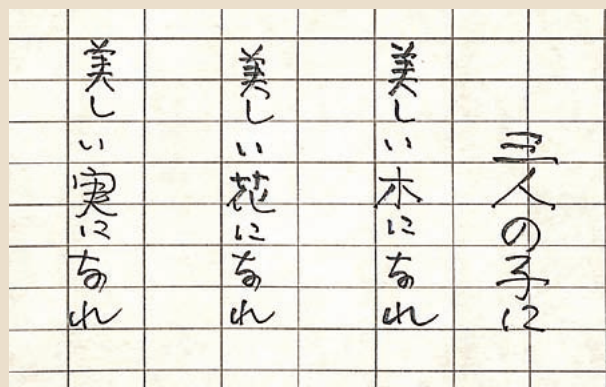 三人の子に
美しい木になれ
美しい花になれ
美しい実になれ